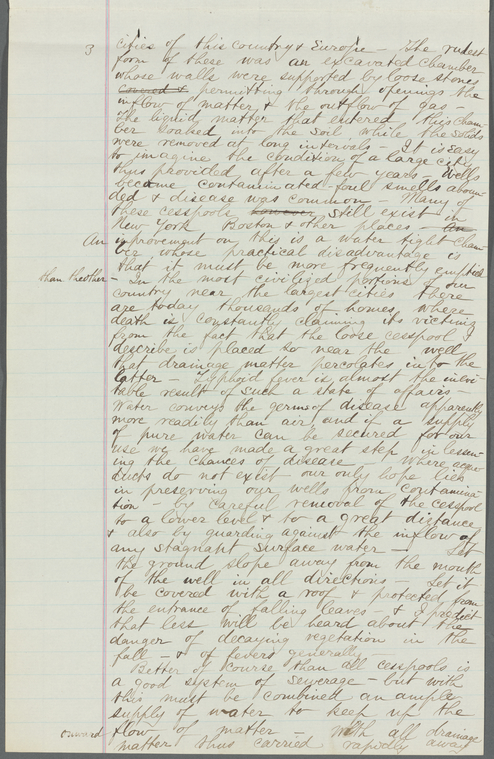 3
cities of this country & Europe - The rudest
form of these was an excavated chamber
whose walls were supported by loose stones
covered & permitting through openings the
inflow of matter & the outflow of gas -
The liquid matter that entered this cham-
ber soaked into the soil while the solids
were removed at long intervals - It is easy
to imagine the condition of a large city
thus provided after a few years - Wells
became contaminated - foul smells aboun-
ded & disease was common - Many of
these cesspools however still exist in
New York Boston & other places - An
An improvement on this is a water tight cham-
ber whose practical disadvantage is
that it must be more frequently emptied
than the other - In the most civilized portions of our
country near the largest cities there
are today thousands of homes where
death is constantly claiming its victims
from the fact that the loose cesspool I
describe is placed so near the well
that drainage matter percolates into the
latter - Typhoid fever is almost the inevi-
table result of such a state of affairs -
Water conveys the germs of disease apparently
more readily than air, and if a supply
of pure water can be secured for our
use we have made a great step in lessen-
ing the chances of disease - Where aque-
ducts do not exist our only hope lies
in preserving our wells from contamina-
tion - by careful removal of the cesspool
to a lower level & to a great distance
& also by guarding against the inflow of
any stagnant surface water - Let
the ground slope away from the mouth
of the well in all directions - Let it
be covered with a roof & protected from
the entrance of falling leaves - & I predict
that less will be heard about the
danger of decaying vegetation in the
fall - & of fevers generally -
Better of course than all cesspools is
a good system of sewerage - but with
this must be combined an ample
supply of water to keep up the
onward flow of matter - With all drainage
matter thus carried rapidly away